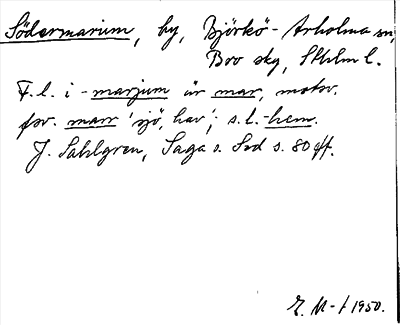 Södermarium, by, Björkö-Arholma sn,
Bro skg, Sthlm l.
F. l. i -marjum är mar, motsv.
fsv. marr 'sjö, hav'; s. l. -hem.
J. Sahlgren, Saga o. Sed s. 80 ff.
E. M-t 1950.